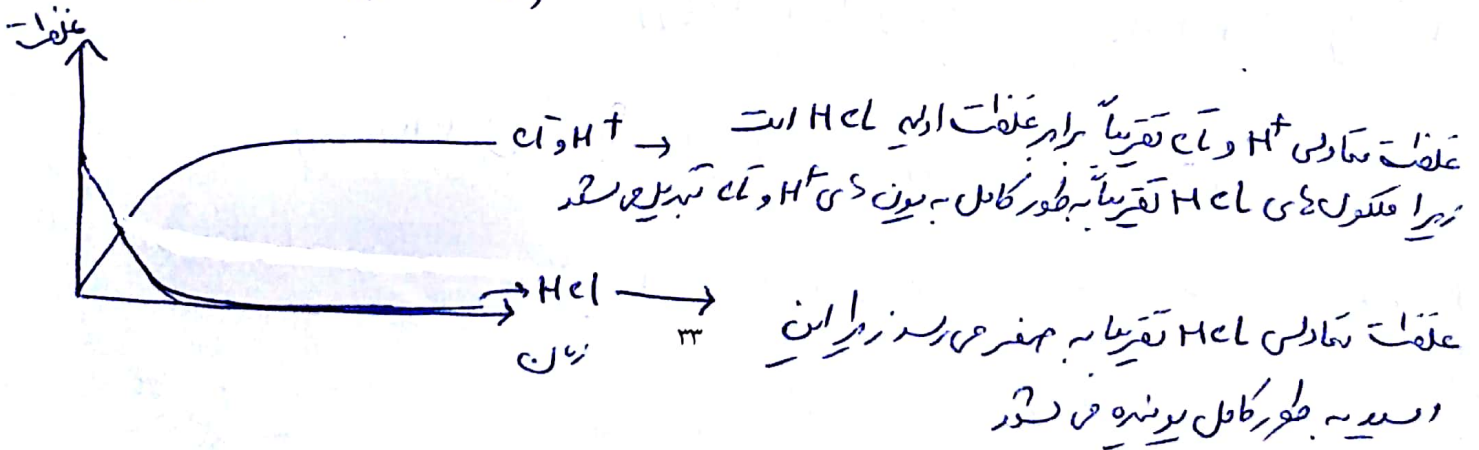 غلظت
Cl⁻ و H⁺ →
غلظت تعادلی H⁺ و Cl⁻ تقریباً برابر غلظت اولیه HCl است
زیرا ملکول های HCl تقریباً به طور کامل به یون های H⁺ و Cl⁻ تبدیل می شود
→ HCl →
غلظت تعادلی HCl تقریبا به صفر می رسد زیرا این
اسید به طور کامل یونیده می شود
زمان
۳۳